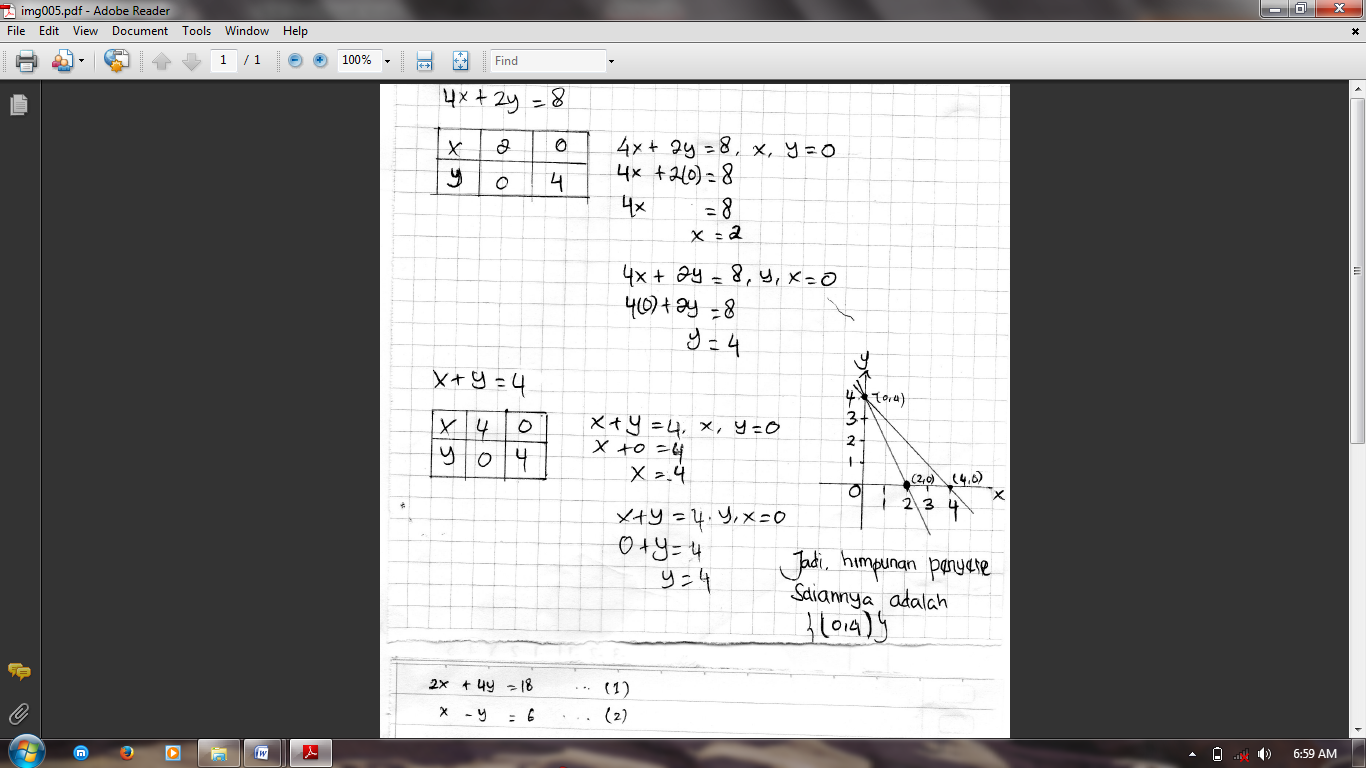 img005.pdf - Adobe Reader
File Edit View Document Tools Window Help
1 / 1 100% Find
4x + 2y = 8
x 2 0
y 0 4
4x + 2y = 8, x, y = 0
4x + 2(0) = 8
4x = 8
x = 2
4x + 2y = 8, y, x = 0
4(0) + 2y = 8
y = 4
x + y = 4
x 4 0
y 0 4
x + y = 4, x, y = 0
x + 0 = 4
x = 4
x + y = 4. y, x = 0
0 + y = 4
y = 4
y
4 (0,4)
3
2
1
(2,0) (4,0)
0 1 2 3 4 x
Jadi, himpunan penyele
Saiannya adalah
{(0,4)}
2x + 4y = 18 ... (1)
x - y = 6 ... (2)
6:59 AM